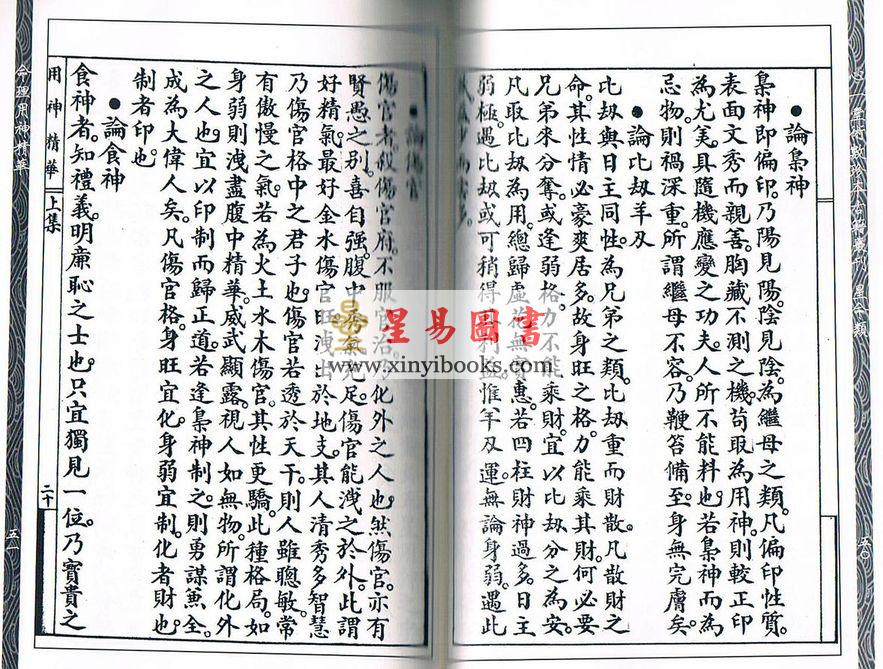 ●論梟神
梟神即偏印。乃陽見陽。陰見陰。為繼母之類。凡偏印性質。
表面文秀而親善。胸藏不測之機。苟取為用神。則較正印
為尤美。具隨機應變之功夫。人所不能料也。若梟神而為
忌物。則禍深重。所謂繼母不容。乃鞭笞備至。身無完膚矣。
●論比刼羊刄
比刼與日主同性。為兄弟之類。比刼重而財散。凡散財之
命。其性情必豪爽居多。故身旺之格。力能乘其財。何必要
兄弟來分奪。或逢弱格。力不能乘財。宜以比刼分之為安。
凡取比刼為用。總歸虛 無實惠。若四柱財神過多。日主
弱極。遇比刼或可稍得 利益。惟羊刄運。無論身弱。遇此
●論傷官
傷官者。殺傷官府。不服官治。 化外之人也。然傷官。亦有
賢愚之別。喜自强。腹中 足。傷官能洩之於外。此謂
好精氣。最好金水傷官旺。洩出於地支。其人清秀多智慧
乃傷官格中之君子也。傷官若透於天干。則人雖聰敏。常
有傲慢之氣。若為火土水木傷官。其性更驕。此種格局。如
身弱則洩盡腹中精華。威武顯露。視人如無物。所謂化外
之人也。宜以印制而歸正道。若逢梟神制之。則勇謀兼全。
成為大偉人矣。凡傷官格。身旺宜化。身弱宜制。化者財也。
制者印也
●論食神
食神者。知禮義。明廉恥之士也。只宜獨見一位。乃寶貴之
用神精華
上集
二十
命理用神精華
五一
五〇
星易圖書
www.xinyibooks.com